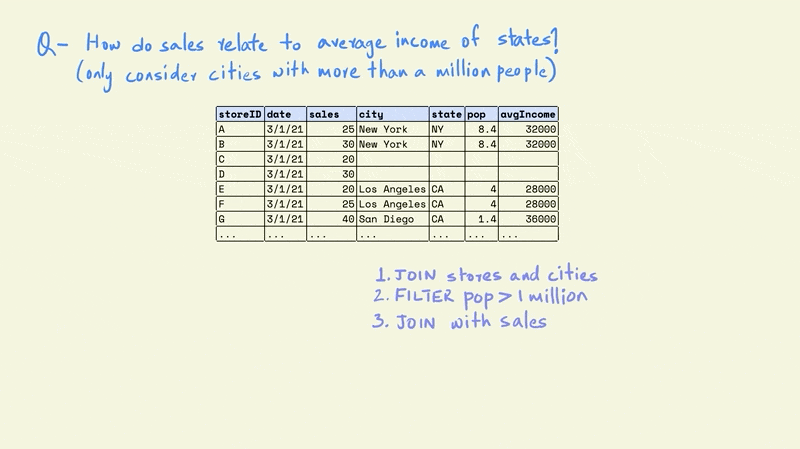 Q- How do sales relate to average income of states?
(only consider cities with more than a million people)
storeID date sales city state pop avgIncome
A 3/1/21 25 New York NY 8.4 32000
B 3/1/21 30 New York NY 8.4 32000
C 3/1/21 20
D 3/1/21 30
E 3/1/21 20 Los Angeles CA 4 28000
F 3/1/21 25 Los Angeles CA 4 28000
G 3/1/21 40 San Diego CA 1.4 36000
... ... ... ... ... ... ...
1. JOIN stores and cities
2. FILTER pop > 1 million
3. JOIN with sales